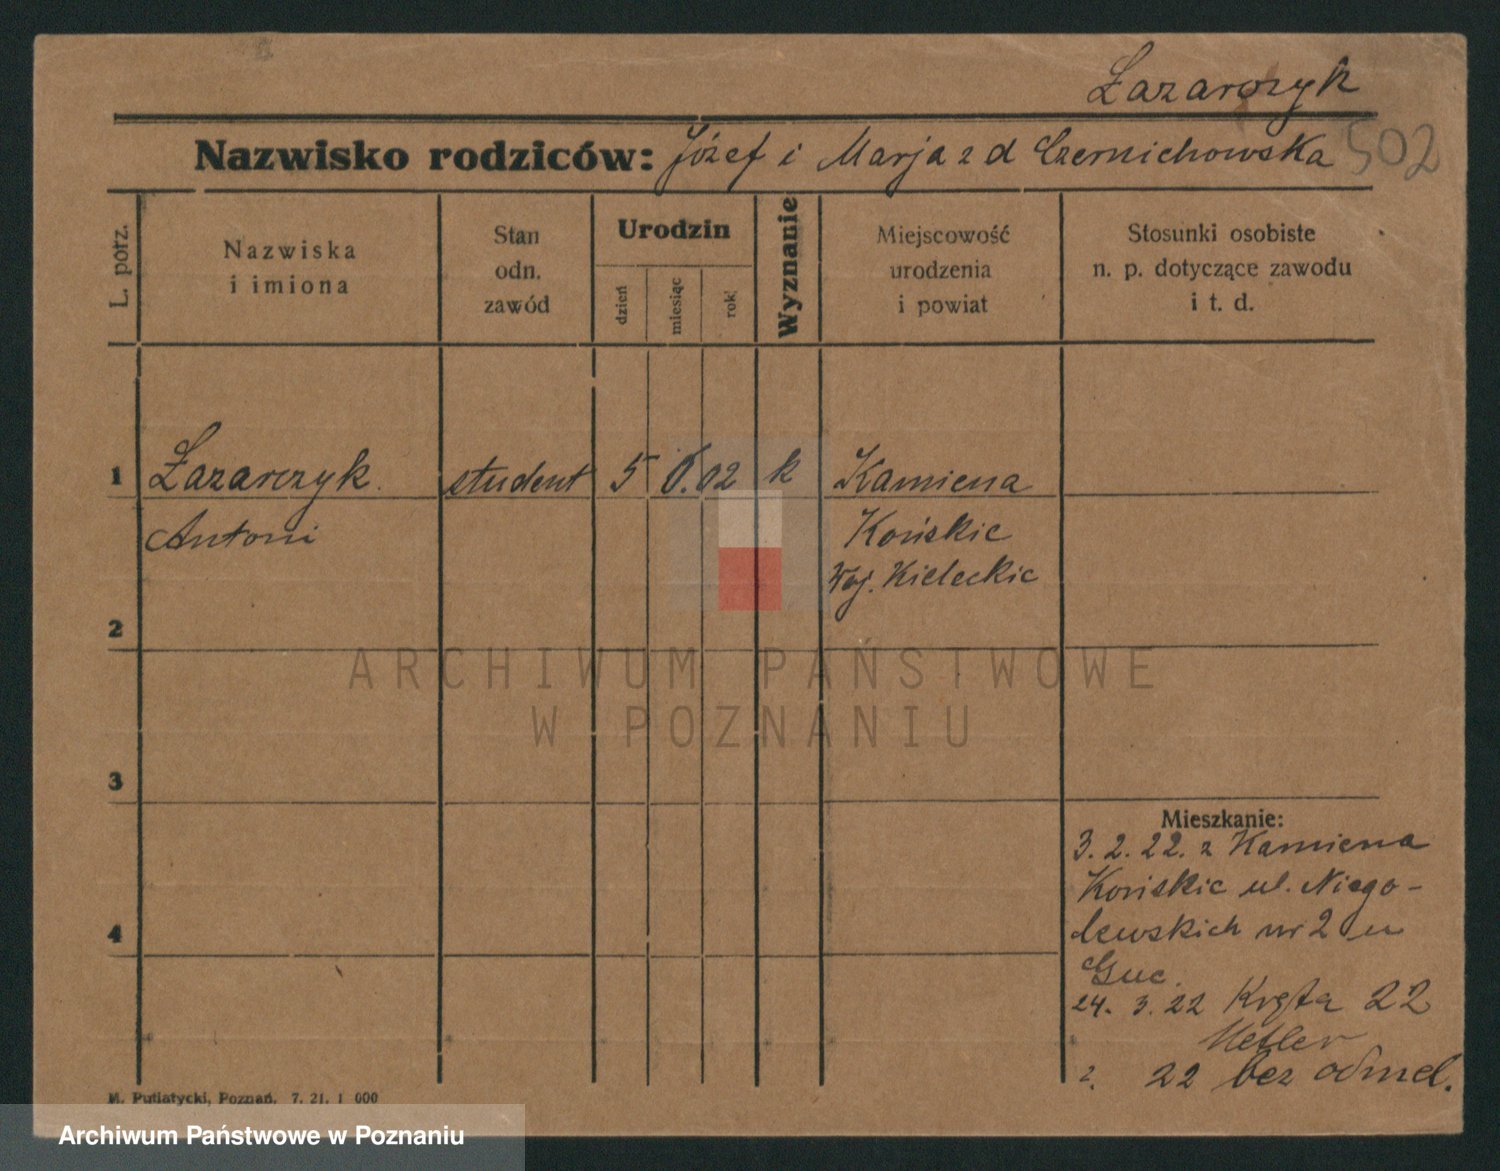 Łazarczyk
Nazwisko rodziców: Józef i Marja z d Czernichowska 502
L. porz.
Nazwiska
i imiona
Stan
odn.
zawód
Urodzin
dzień
miesiąc
rok
Wyznanie
Miejscowość
urodzenia
i powiat
Stosunki osobiste
n. p. dotyczące zawodu
i t. d.
1 Łazarczyk student 5 6.02 k Kamiena
Antoni Końskie
Woj. Kieleckie
2
3
Mieszkanie:
3. 2. 22. z Kamiena
Końskie ul. Niego-
lewskich nr 2 u
4
Guc.
24. 3. 22 Kręta 22
22 bez odmel.
M. Putiatycki, Poznań, 7. 21. 1 000
ARCHIWUM PAŃSTWOWE
W POZNANIU
Archiwum Państwowe w Poznaniu